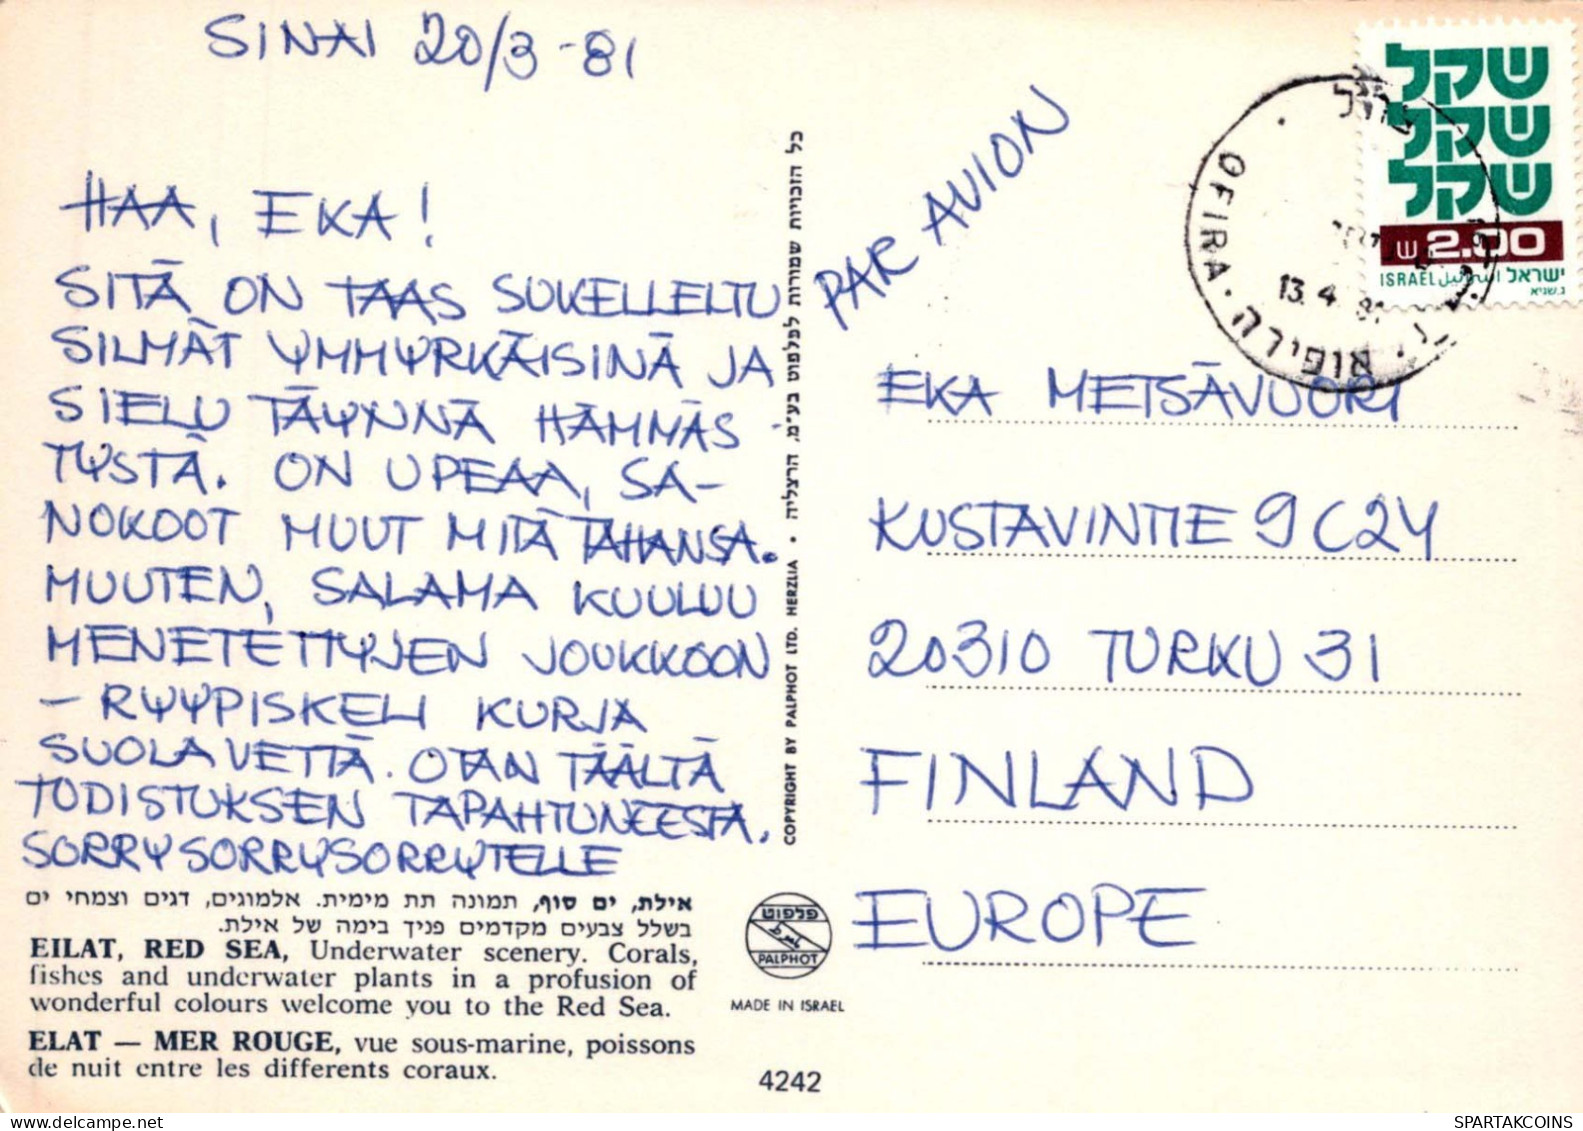 SINAI 20/3 -81
HAA, EKA!
SITÄ ON TAAS SUKELLELTU
SILMÄT YMMYRKÄISINÄ JA
SIELU TÄYNNÄ HÄMMÄS-
TYSTÄ. ON UPEAA, SA-
NOKOOT MUUT MITÄ TAHANSA.
MUUTEN, SALAMA KUULUU
MENETETTYJEN JOUKKOON
- RYYPISKELI KURJA
SUOLAVETTÄ. OTAN TÄÄLTÄ
TODISTUKSEN TAPAHTUNEESTA.
SORRYSORRYSORRYTELLE
אילת, ים סוף, תמונה תת מימית. אלמוגים, דגים וצמחי ים
בשלל צבעים מקדמים פניך בימה של אילת.
EILAT, RED SEA, Underwater scenery. Corals,
fishes and underwater plants in a profusion of
wonderful colours welcome you to the Red Sea.
ELAT — MER ROUGE, vue sous-marine, poissons
de nuit entre les differents coraux.
COPYRIGHT BY PALPHOT LTD. HERZLIA • כל הזכויות שמורות לפלפוט בע"מ, הרצליה
פלפוט
PALPHOT
MADE IN ISRAEL
4242
PAR AVION
שקל
שקל
שקל
ש 2.00
ISRAEL اسرائيل ישראל
OFIRA • אופירה
13.4.81
EKA METSÄVUORI
KUSTAVINTIE 9 C24
20310 TURKU 31
FINLAND
EUROPE
SPARTAKCOINS